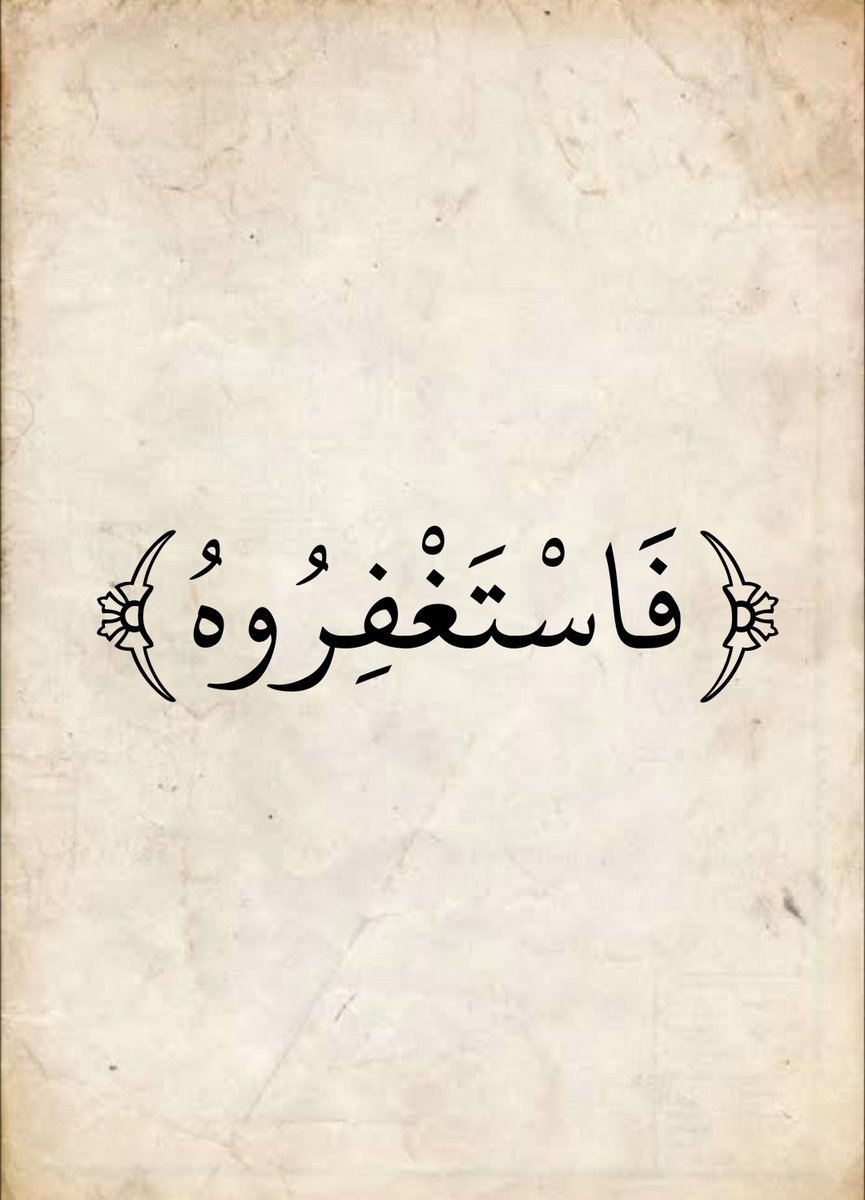 ﴿ فَاسْتَغْفِرُوهُ ﴾